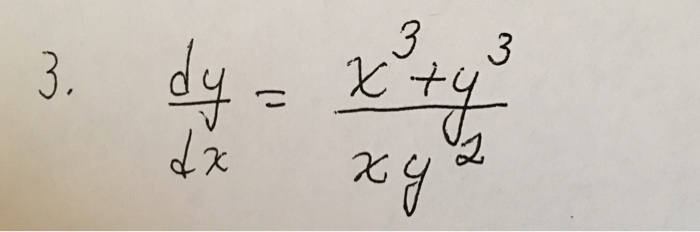 3. dy/dx = (x³+y³)/(xy²)